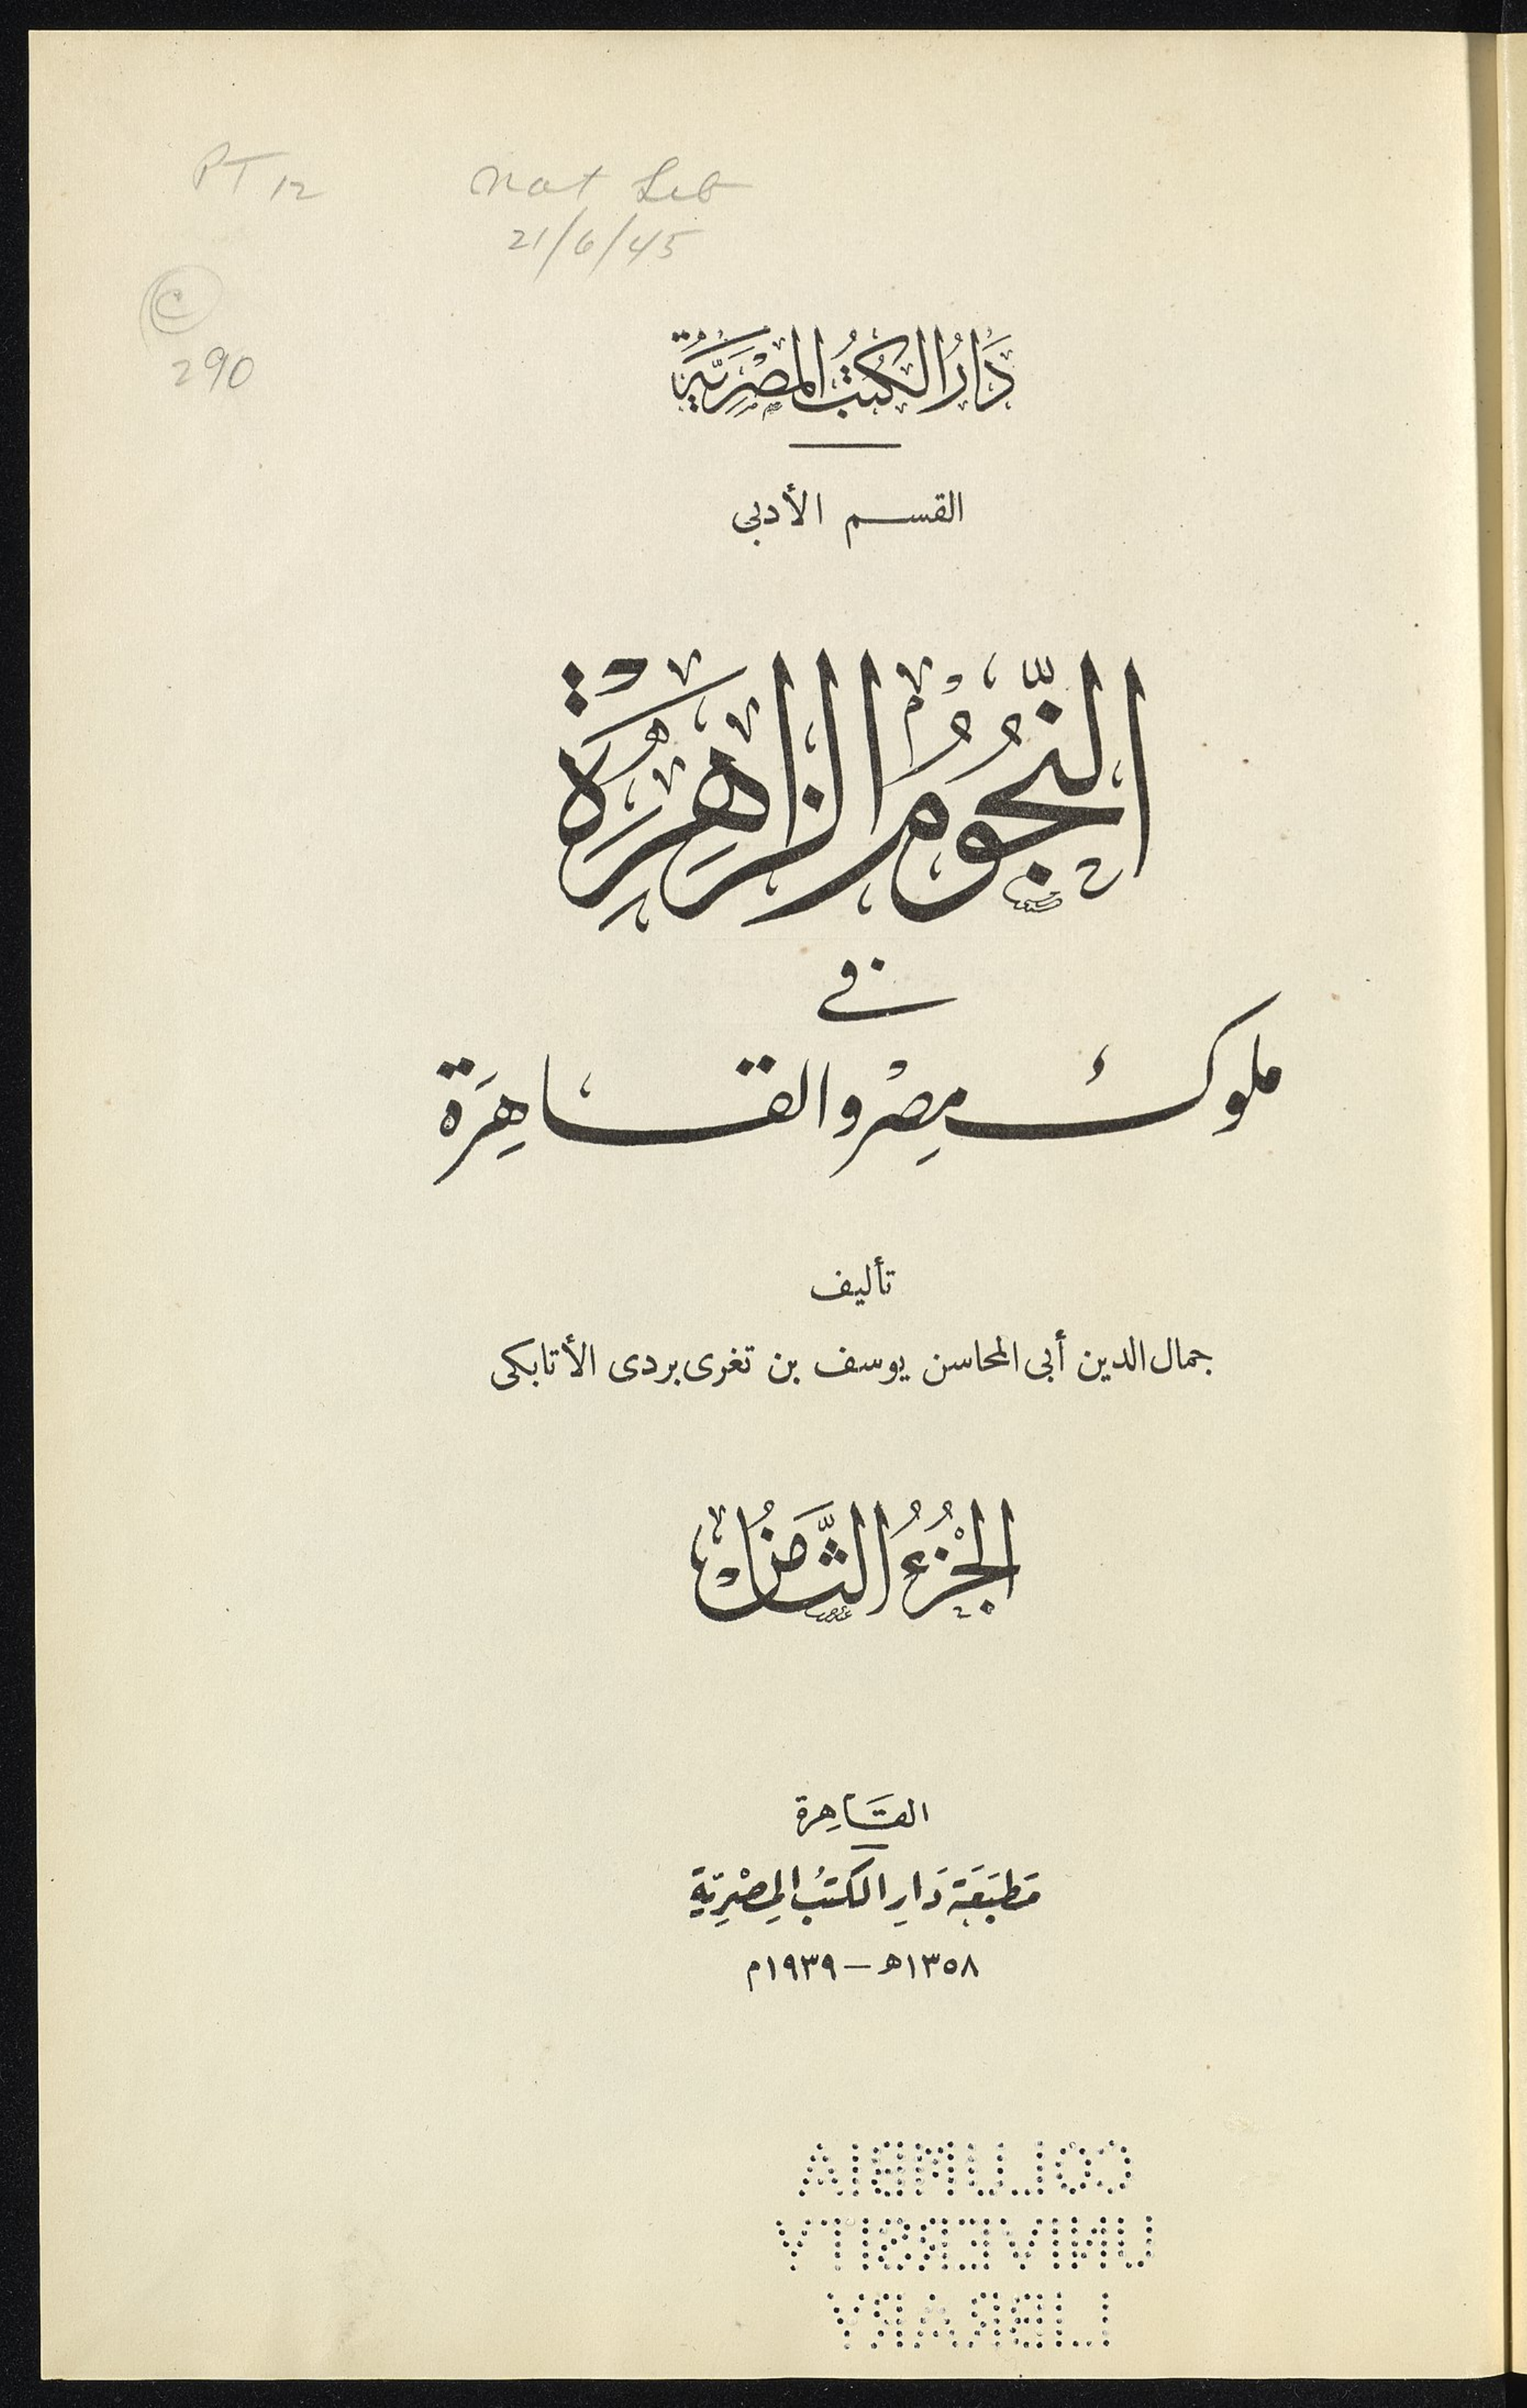 PT 12 Nat Lib
21/6/45
C
290
دَارُ الكُتُبِ المِصْرِيَّةُ
القسم الأدبى
النُّجُومُ الزَاهِرَةُ
فى
ملوك مِصْر والقاهِرَة
تأليف
جمال الدين أبى المحاسن يوسف بن تغرى بردى الأتابكى
الجُزْءُ الثَّامِنُ
القَاهِرة
مَطبَعَة دَارِ الكتُب المِصْرِيّةِ
١٣٥٨ھ – ١٩٣٩م
COLUMBIA
UNIVERSITY
LIBRARY